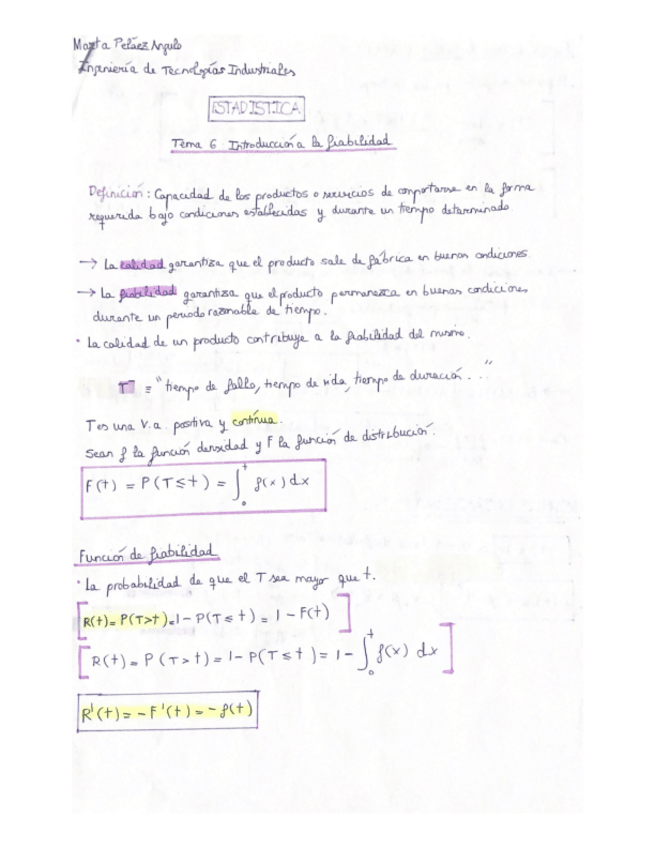 Marta Peláez Angulo
Ingeniería de Tecnologías Industriales
ESTADISTICA
Tema 6 Introducción a la fiabilidad
Definición: Capacidad de los productos o servicios de comportarse en la forma
requerida bajo condiciones establecidas y durante un tiempo determinado
→ La calidad garantiza que el producto sale de fábrica en buenas condiciones.
→ La fiabilidad garantiza que el producto permanezca en buenas condiciones
durante un periodo razonable de tiempo.
· La calidad de un producto contribuye a la fiabilidad del mismo.
T = "tiempo de fallo, tiempo de vida, tiempo de duración..."
T es una V.a. positiva y continua.
Sean f la función densidad y F la función de distribución.
F(t) = P(T≤t) = ∫₀ᵗ f(x)dx
Función de fiabilidad
· La probabilidad de que el T sea mayor que t.
[R(t)= P(T>t)=1-P(T≤t) = 1-F(t)]
[R(t)= P(T>t)=1-P(T≤t)=1-∫₀ᵗ f(x) dx]
R'(t)=-F'(t)=-f(t)